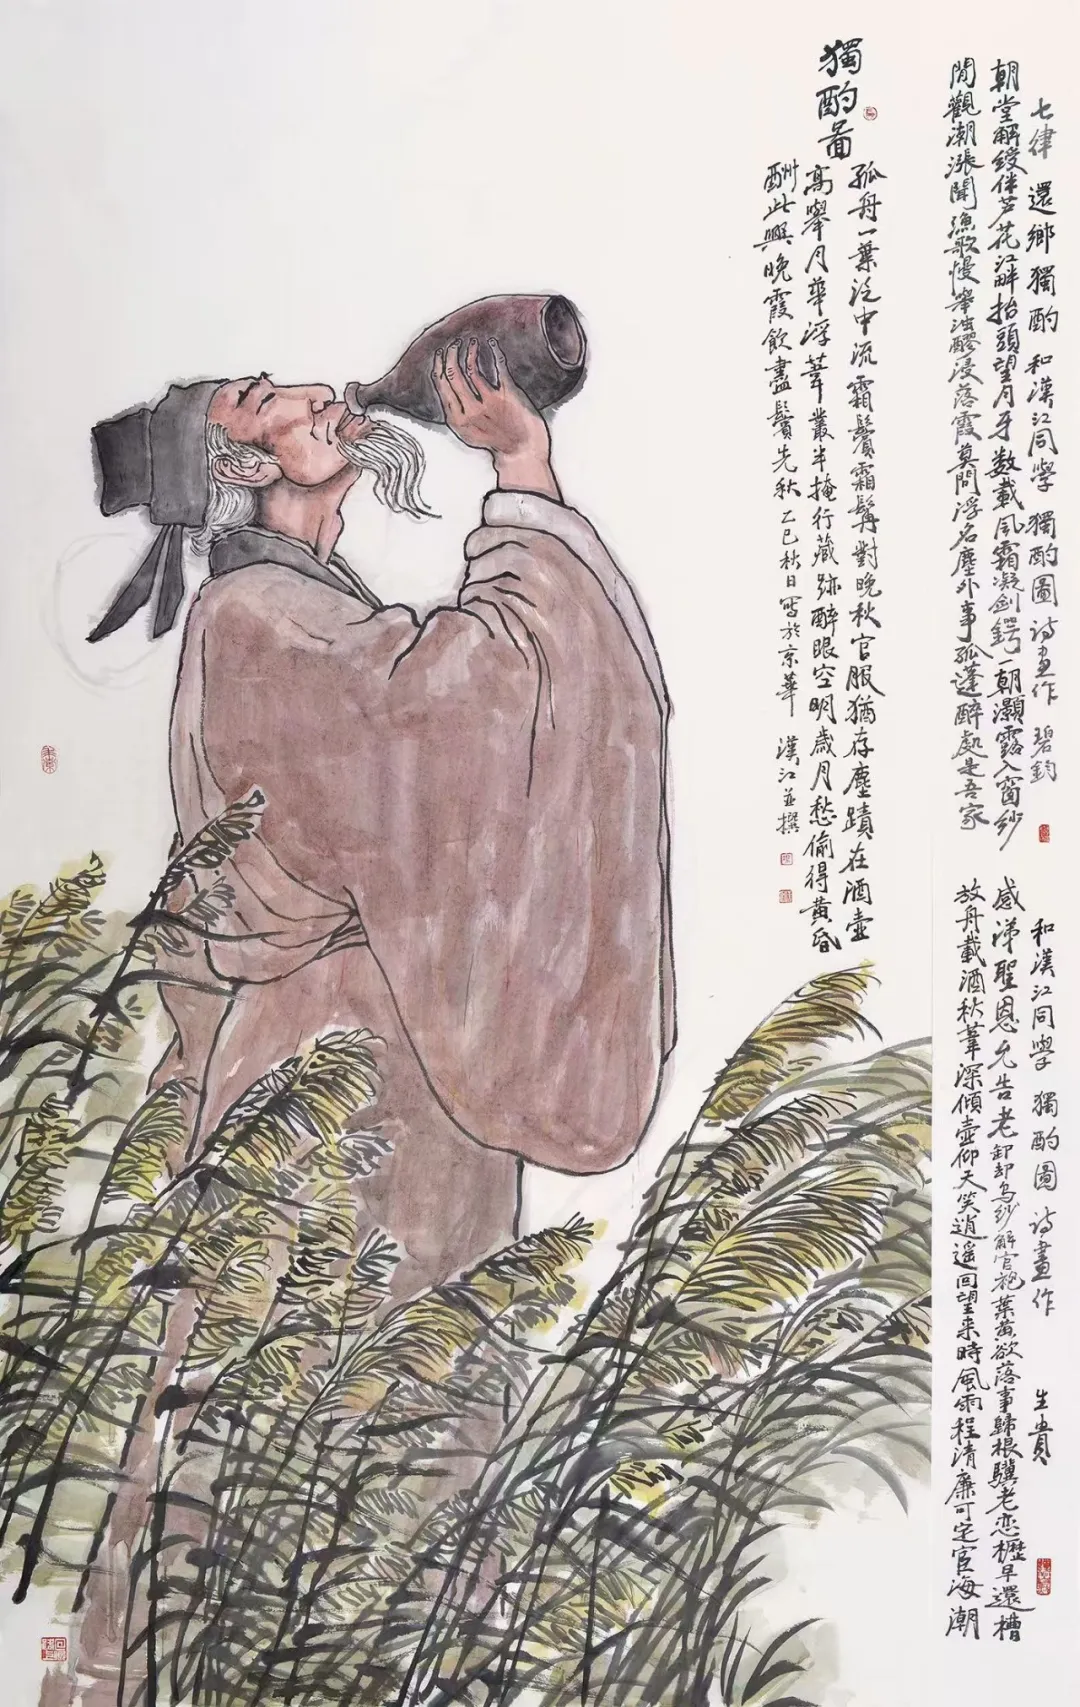 七律 還鄉獨酌 和漢江同學 獨酌圖 诗画作 碧鈞
朝堂解绶伴芦花江畔抬頭望月牙数載风霜凝剑鍔一朝灝露入窗纱
閒觀潮漲聞漁歌慢举浊醪浸落霞莫問浮名塵外事孤蓬醉處是吾家
和漢江同学 獨酌圖 诗畫作 生貴
感涕聖恩允告老卸却乌纱解官袍葉黄欲落事歸根驥老恋櫪早還槽
放舟載酒秋葦深傾壶仰天笑逍遥回望来時風雨程清廉可定宦海潮
獨酌啚
孤舟一葉泛中流霜鬢霜髯對晚秋官服猶存塵蹟在酒壶
高舉月華浮葦叢半掩行藏跡醉眼空明歲月愁偷得黃昏
酬此興晚霞飲盡鬢先秋 乙巳秋日寫於京華 漢江並撰